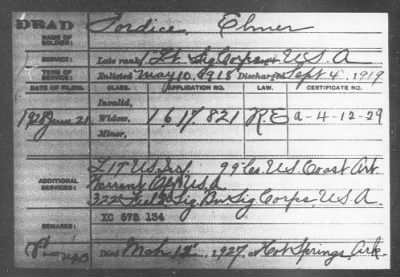 DEAD Sordice, Elmer
NAME OF SOLDIER:
SERVICE: Late rank, 1 Lt Sig Corps U.S.A
TERM OF SERVICE: Enlisted May 10, 1918 Discharged Sept 4, 1919
DATE OF FILING. CLASS. APPLICATION NO. LAW. CERTIFICATE NO.
Invalid,
1928 June 21 Widow, 1617821 R.E a-4-12-29
Minor,
L 17 U.S. Inf. 99 Co. U.S. Coast Art.
ADDITIONAL SERVICES: U.S.A
322 Field Sig Bn Sig Corps, U.S.A.
XC 673 134
REMARKS:
Died Mch 12, 1927, at Hot Springs Ark.